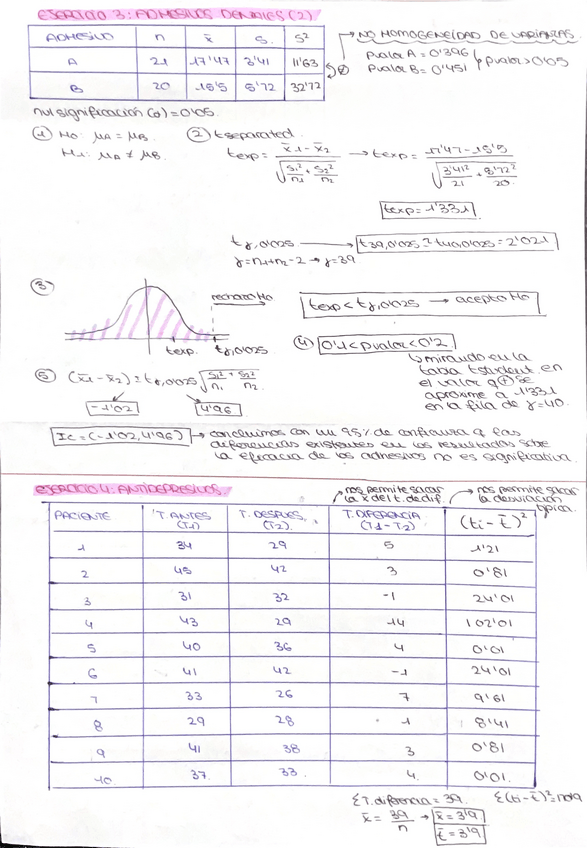 EJERCICIO 3: ADHESIVOS DENTALES (2)
ADHESIVO n x̄ S S²
A 21 17'47 3'41 11'63
B 20 15'5 5'72 32'72
NO HOMOGENEIDAD DE VARIANZAS
Pvalor A = 0'396
Pvalor B = 0'451
pvalor > 0'05
nul significación (α) = 0'05.
① H₀: μA = μB.
H₁: μA ≠ μB.
② t separated.
texp = x̄1 - x̄2 / √(S₁²/n₁ + S₂²/n₂) → texp = 17'47 - 15'5 / √(3'41²/21 + 5'72²/20)
texp = 1'331
tγ,0'025 → t39,0'025 ≈ t40,0'025 = 2'021
γ = n1 + n2 - 2 → γ = 39
③ rechazo H₀
texp. tγ,0'025
texp < tγ,0'025 → acepto H₀
④ 0'1 < pvalor < 0'2
mirando en la
tabla tstudent, en
el valor q ⊕ se
aproxime a 1'331
en la fila de γ = 40.
⑤ (x̄1 - x̄2) ± tγ,0'025 √(S₁²/n₁ + S₂²/n₂)
-1'02 4'96
Ic = (-1'02, 4'96) → concluimos con un 95% de confianza q las
diferencias existentes en los resultados sobre
la eficacia de los adhesivos no es significativa.
EJERCICIO 4: ANTIDEPRESIVOS.
nos permite sacar
la x̄ del t. de dif.
nos permite sacar
la desviación
típica.
PACIENTE T. ANTES (T1) T. DESPUES (T2) T. DIFERENCIA (T1 - T2) (ti - t̄)²
1 34 29 5 1'21
2 45 42 3 0'81
3 31 32 -1 24'01
4 43 29 14 102'01
5 40 36 4 0'01
6 41 42 -1 24'01
7 33 26 7 9'61
8 29 28 1 8'41
9 41 38 3 0'81
10. 37. 33. 4. 0'01.
ΣT. diferencia = 39.
x̄ = 39/n → x̄ = 3'9
t̄ = 3'9